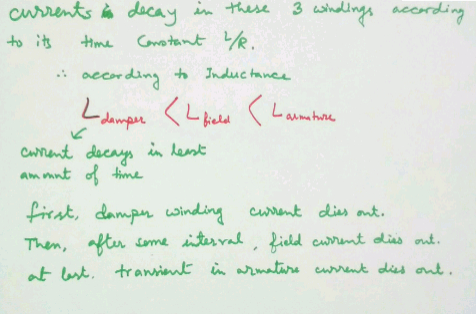 currents is decay in these 3 windings according
to its time Constant L/R.
∴ according to Inductance
L damper < L field < L armature
current decays in least
amount of time
first, damper winding current dies out.
Then, after some interval, field current dies out.
at last. transient in armature current dies out.